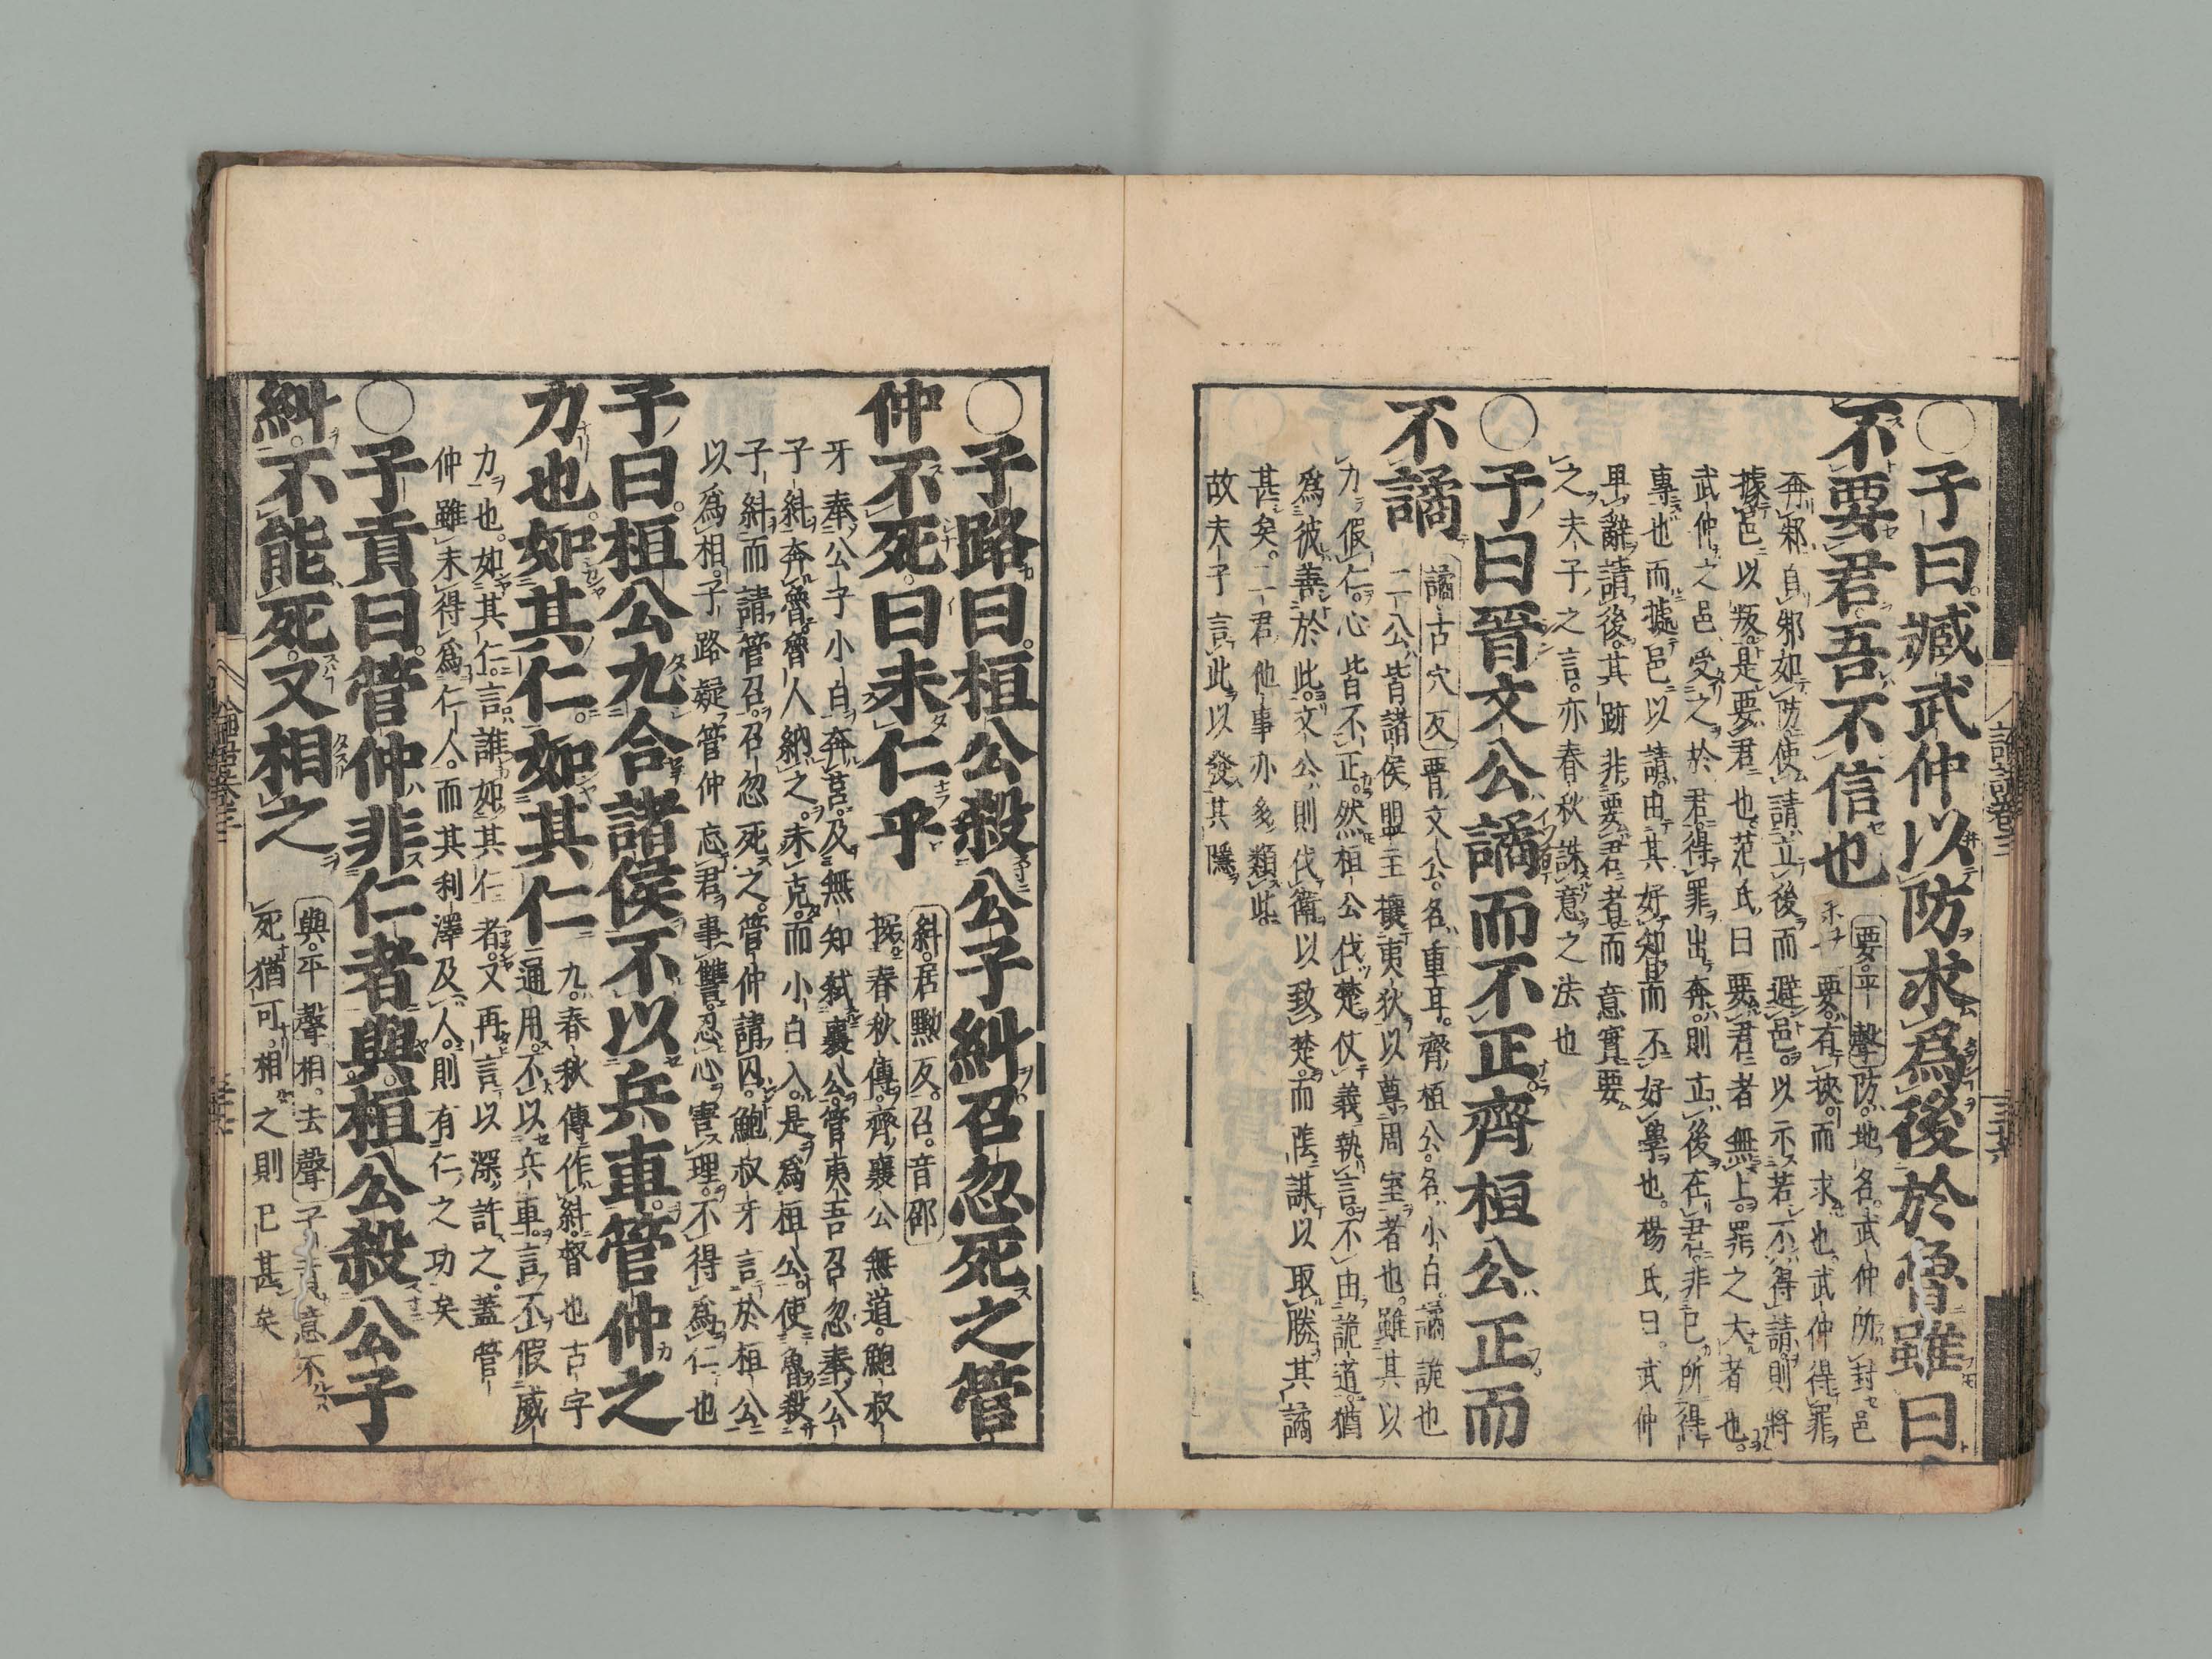 ○子曰臧武仲以防求爲後於魯雖曰
不要君吾不信也
要平聲防地名武仲所封邑
也要有挾而求也武仲得罪
奔邾自邾如防使請立後而避邑以示若不得請則將
據邑以叛是要君也范氏曰要君者無上罪之大者也
武仲之邑受之於君得罪出奔則立後在君非己所得
專也而據邑以請由其好知而不好學也楊氏曰武仲
卑辭請後其跡非要君者而意實要
之夫子之言亦春秋誅意之法也
○子曰晉文公譎而不正齊桓公正而
不譎
譎古穴反晋文公名重耳齊桓公名小白譎詭也
二公皆諸侯盟主攘夷狄以尊周室者也雖其以
力假仁心皆不正然桓公伐楚仗義執言不由詭道猶
爲彼善於此文公則伐衛以致楚而陰謀以取勝其譎
甚矣二君他事亦多類此
故夫子言此以發其隱
○子路曰桓公殺公子糾召忽死之管
仲不死曰未仁乎
糾居黝反召音邵
按春秋傳齊襄公無道鮑叔
牙奉公子小白奔莒及無知弑襄公管夷吾召忽奉公
子糾奔魯魯人納之未克而小白入是爲桓公使魯殺
子糾而請管召召忽死之管仲請囚鮑叔牙言於桓公
以爲相子路疑管仲忘君事讐忍心害理不得爲仁也
子曰桓公九合諸侯不以兵車管仲之
力也如其仁如其仁
九春秋傳作糾督也古字
通用不以兵車言不假威
力也如其仁言誰如其仁者又再言以深許之蓋管
仲雖未得爲仁人而其利澤及人則有仁之功矣
○子貢曰管仲非仁者與桓公殺公子
糾不能死又相之
與平聲相去聲子貢意不
死猶可相之則已甚矣
論語卷三